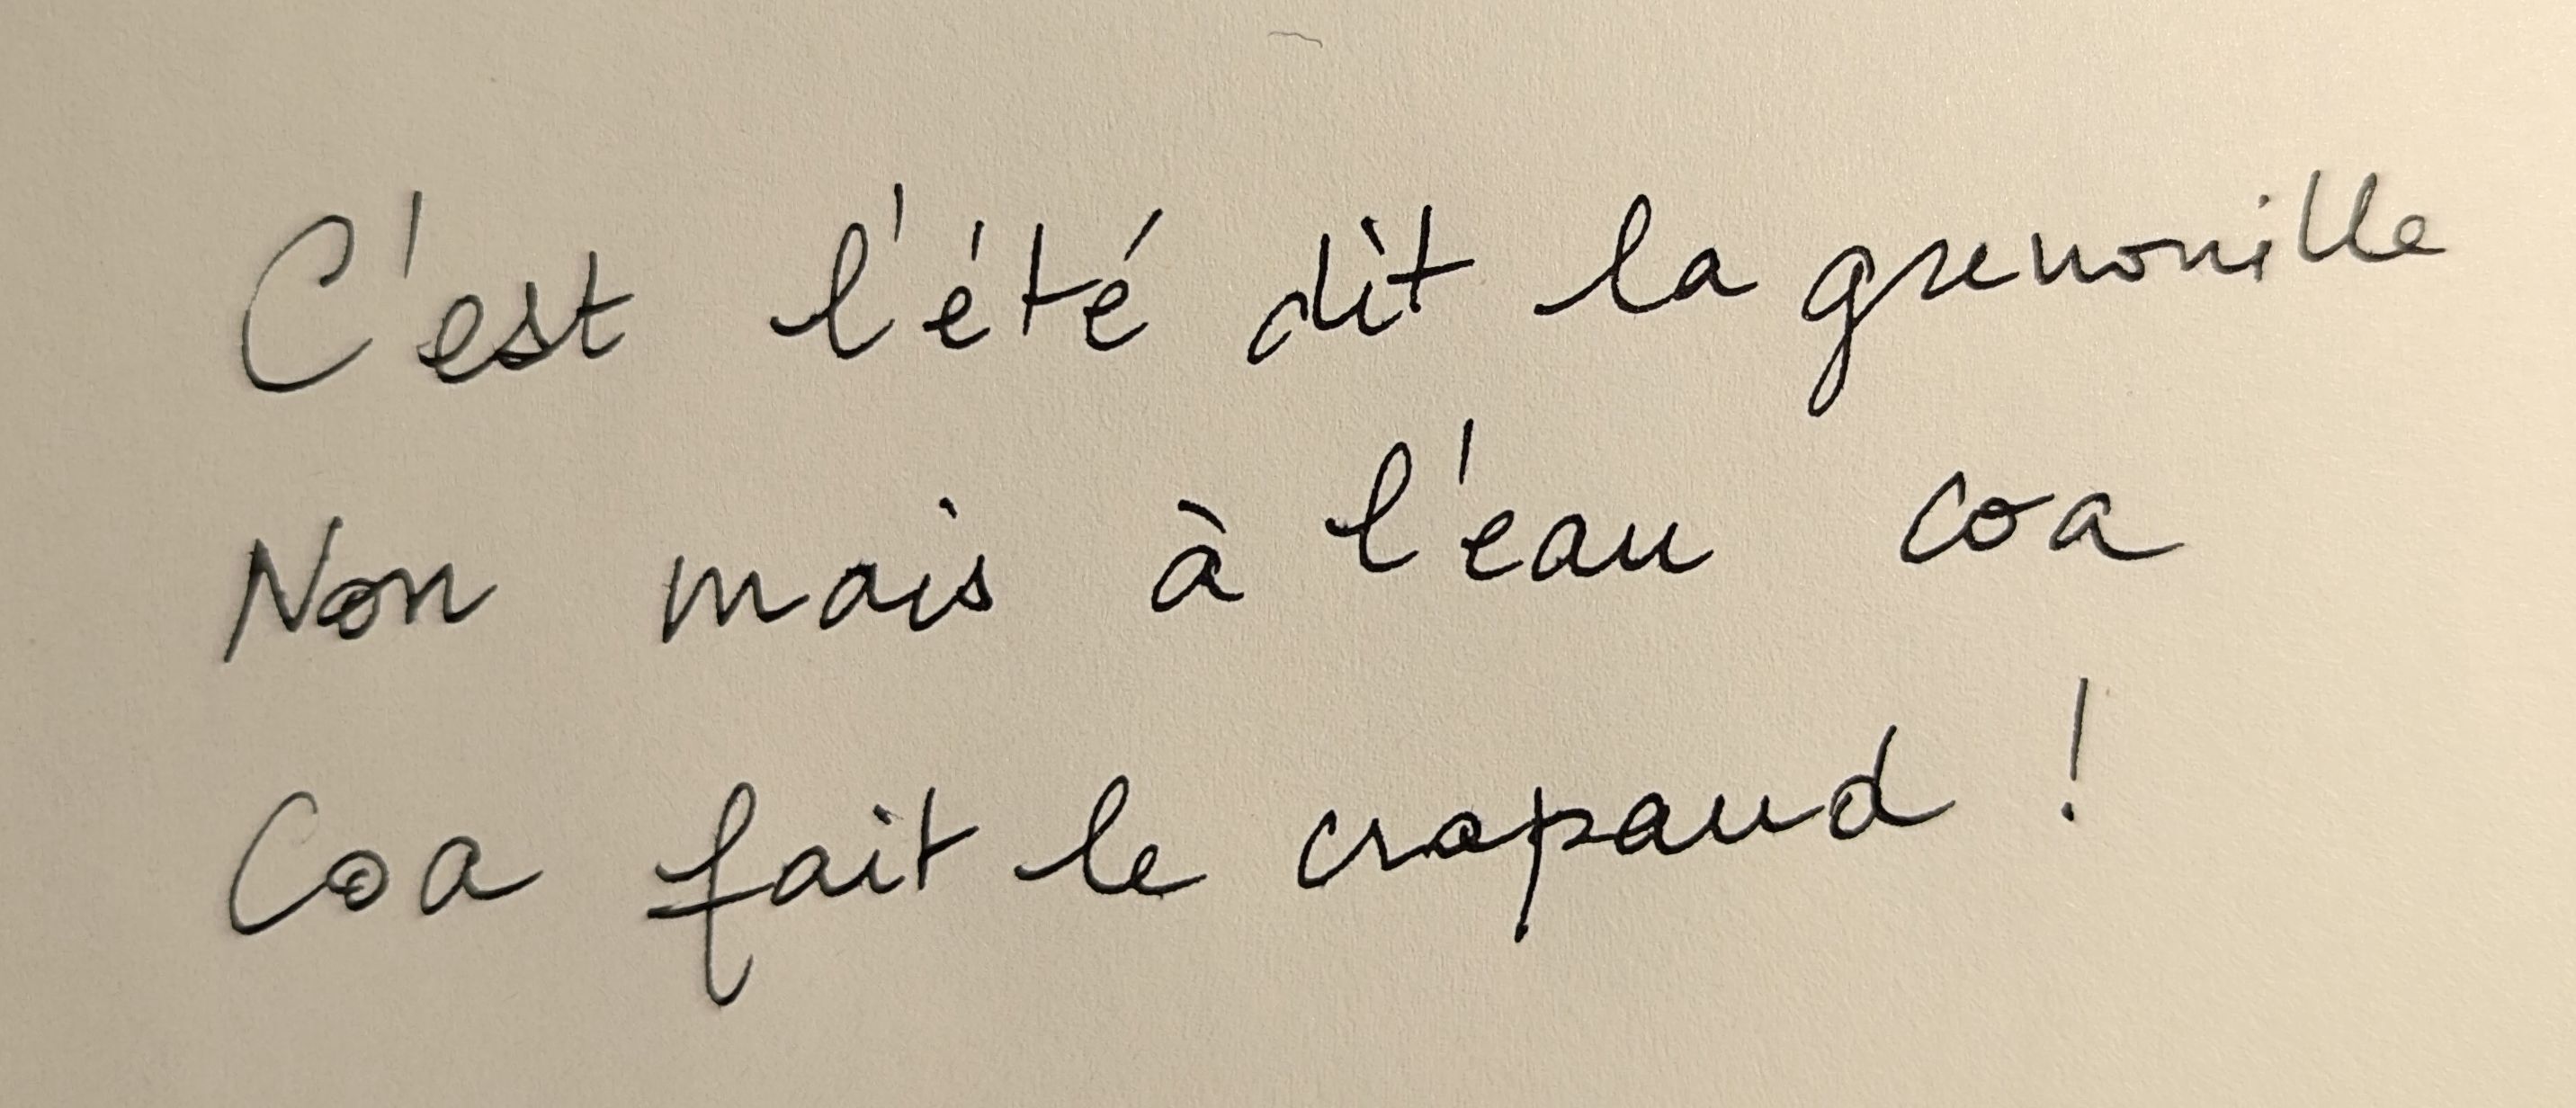 C'est l'été dit la grenouille
Non mais à l'eau coa
Coa fait le crapaud !